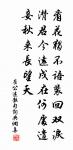 看花獨不語裴回双淚
潸君今遠戍在何處遣
妾秋來長望天